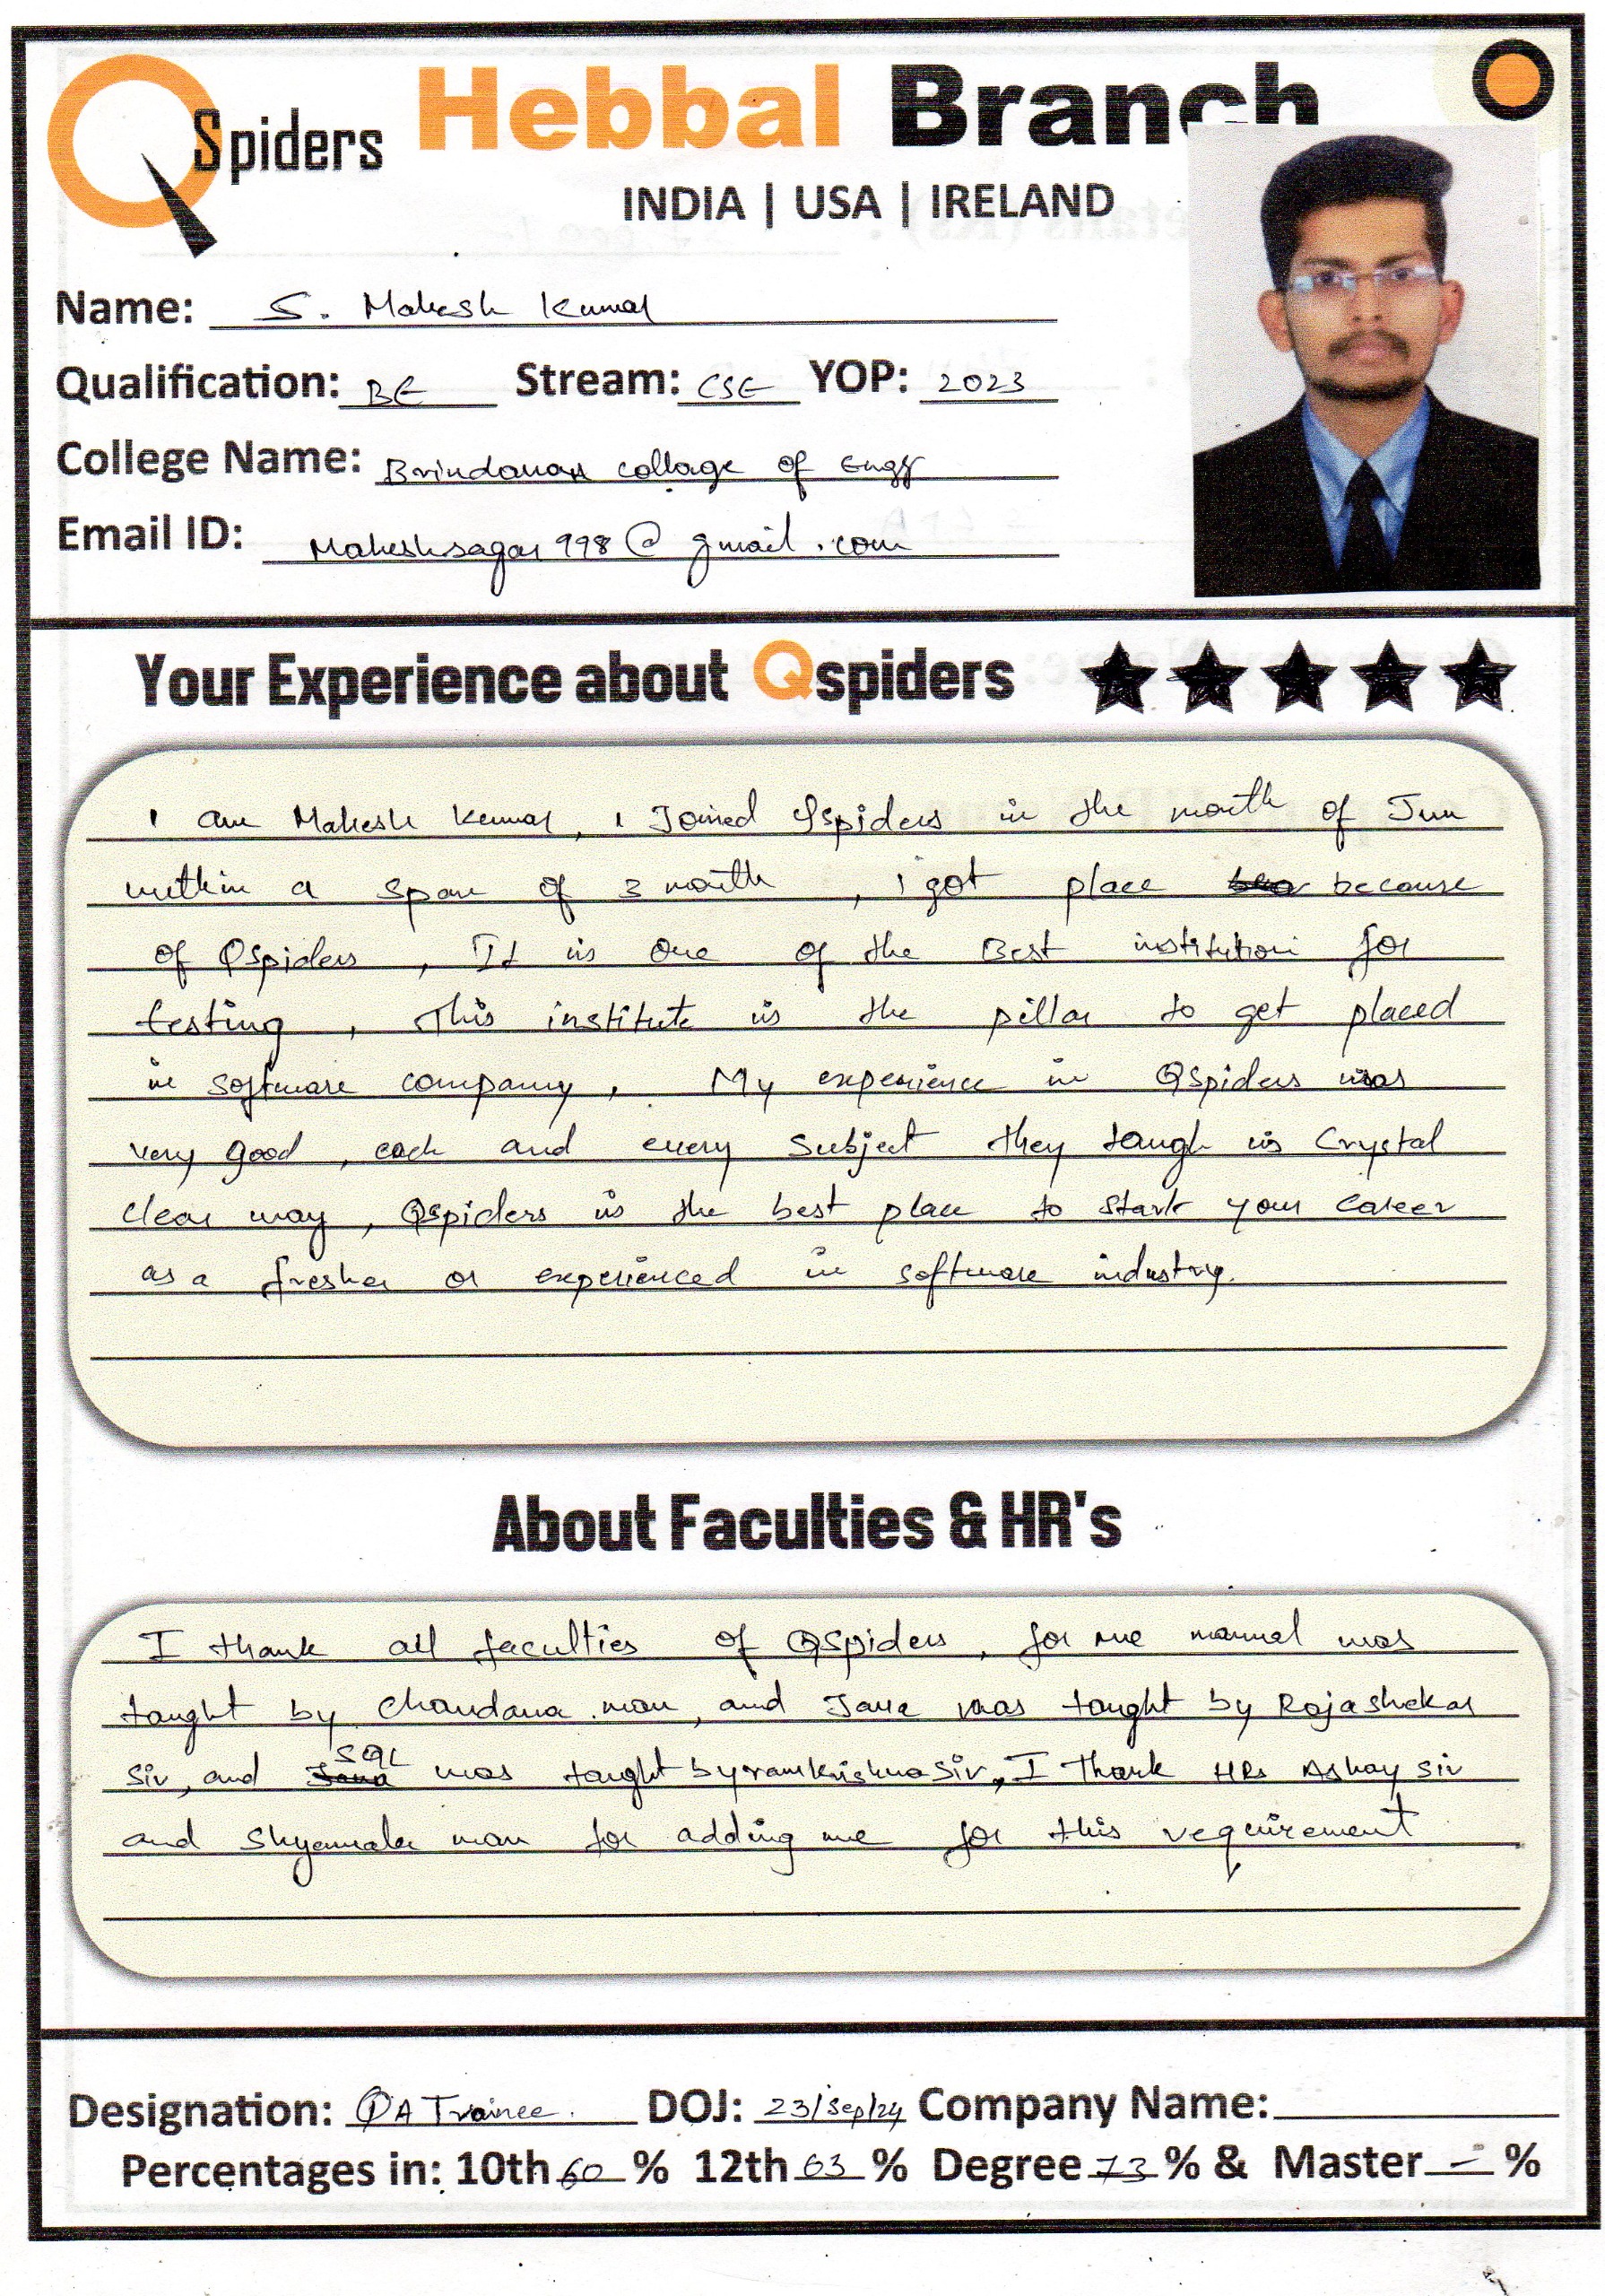 QSpiders Hebbal Branch
INDIA | USA | IRELAND
Name: S. Mahesh Kumar
Qualification: BE Stream: CSE YOP: 2023
College Name: Brindavan college of Engg
Email ID: Maheshsagar998@gmail.com
Your Experience about Qspiders
I am Mahesh Kumar, I Joined Qspiders in the month of Jun
within a span of 3 month, I got place because
of Qspiders, It is One of the Best institution for
testing, This institute is the pillar to get placed
in software company, My experience in QSpiders was
very good, each and every Subject they taugh is Crystal
clear way, Qspiders is the best place to start your career
as a fresher or experienced in software industry.
About Faculties & HR's
I thank all faculties of QSpiders, for me manual was
taught by Chandana mam, and Java was taught by Rajashekar
Sir, and SQL was taught by ramkrishna Sir, I Thank HRs Ashay Sir
and Shyamala mam for adding me for this requirement
Designation: QA Trainee. DOJ: 23/Sep/24 Company Name:
Percentages in: 10th 60 % 12th 63 % Degree 73 % & Master - %